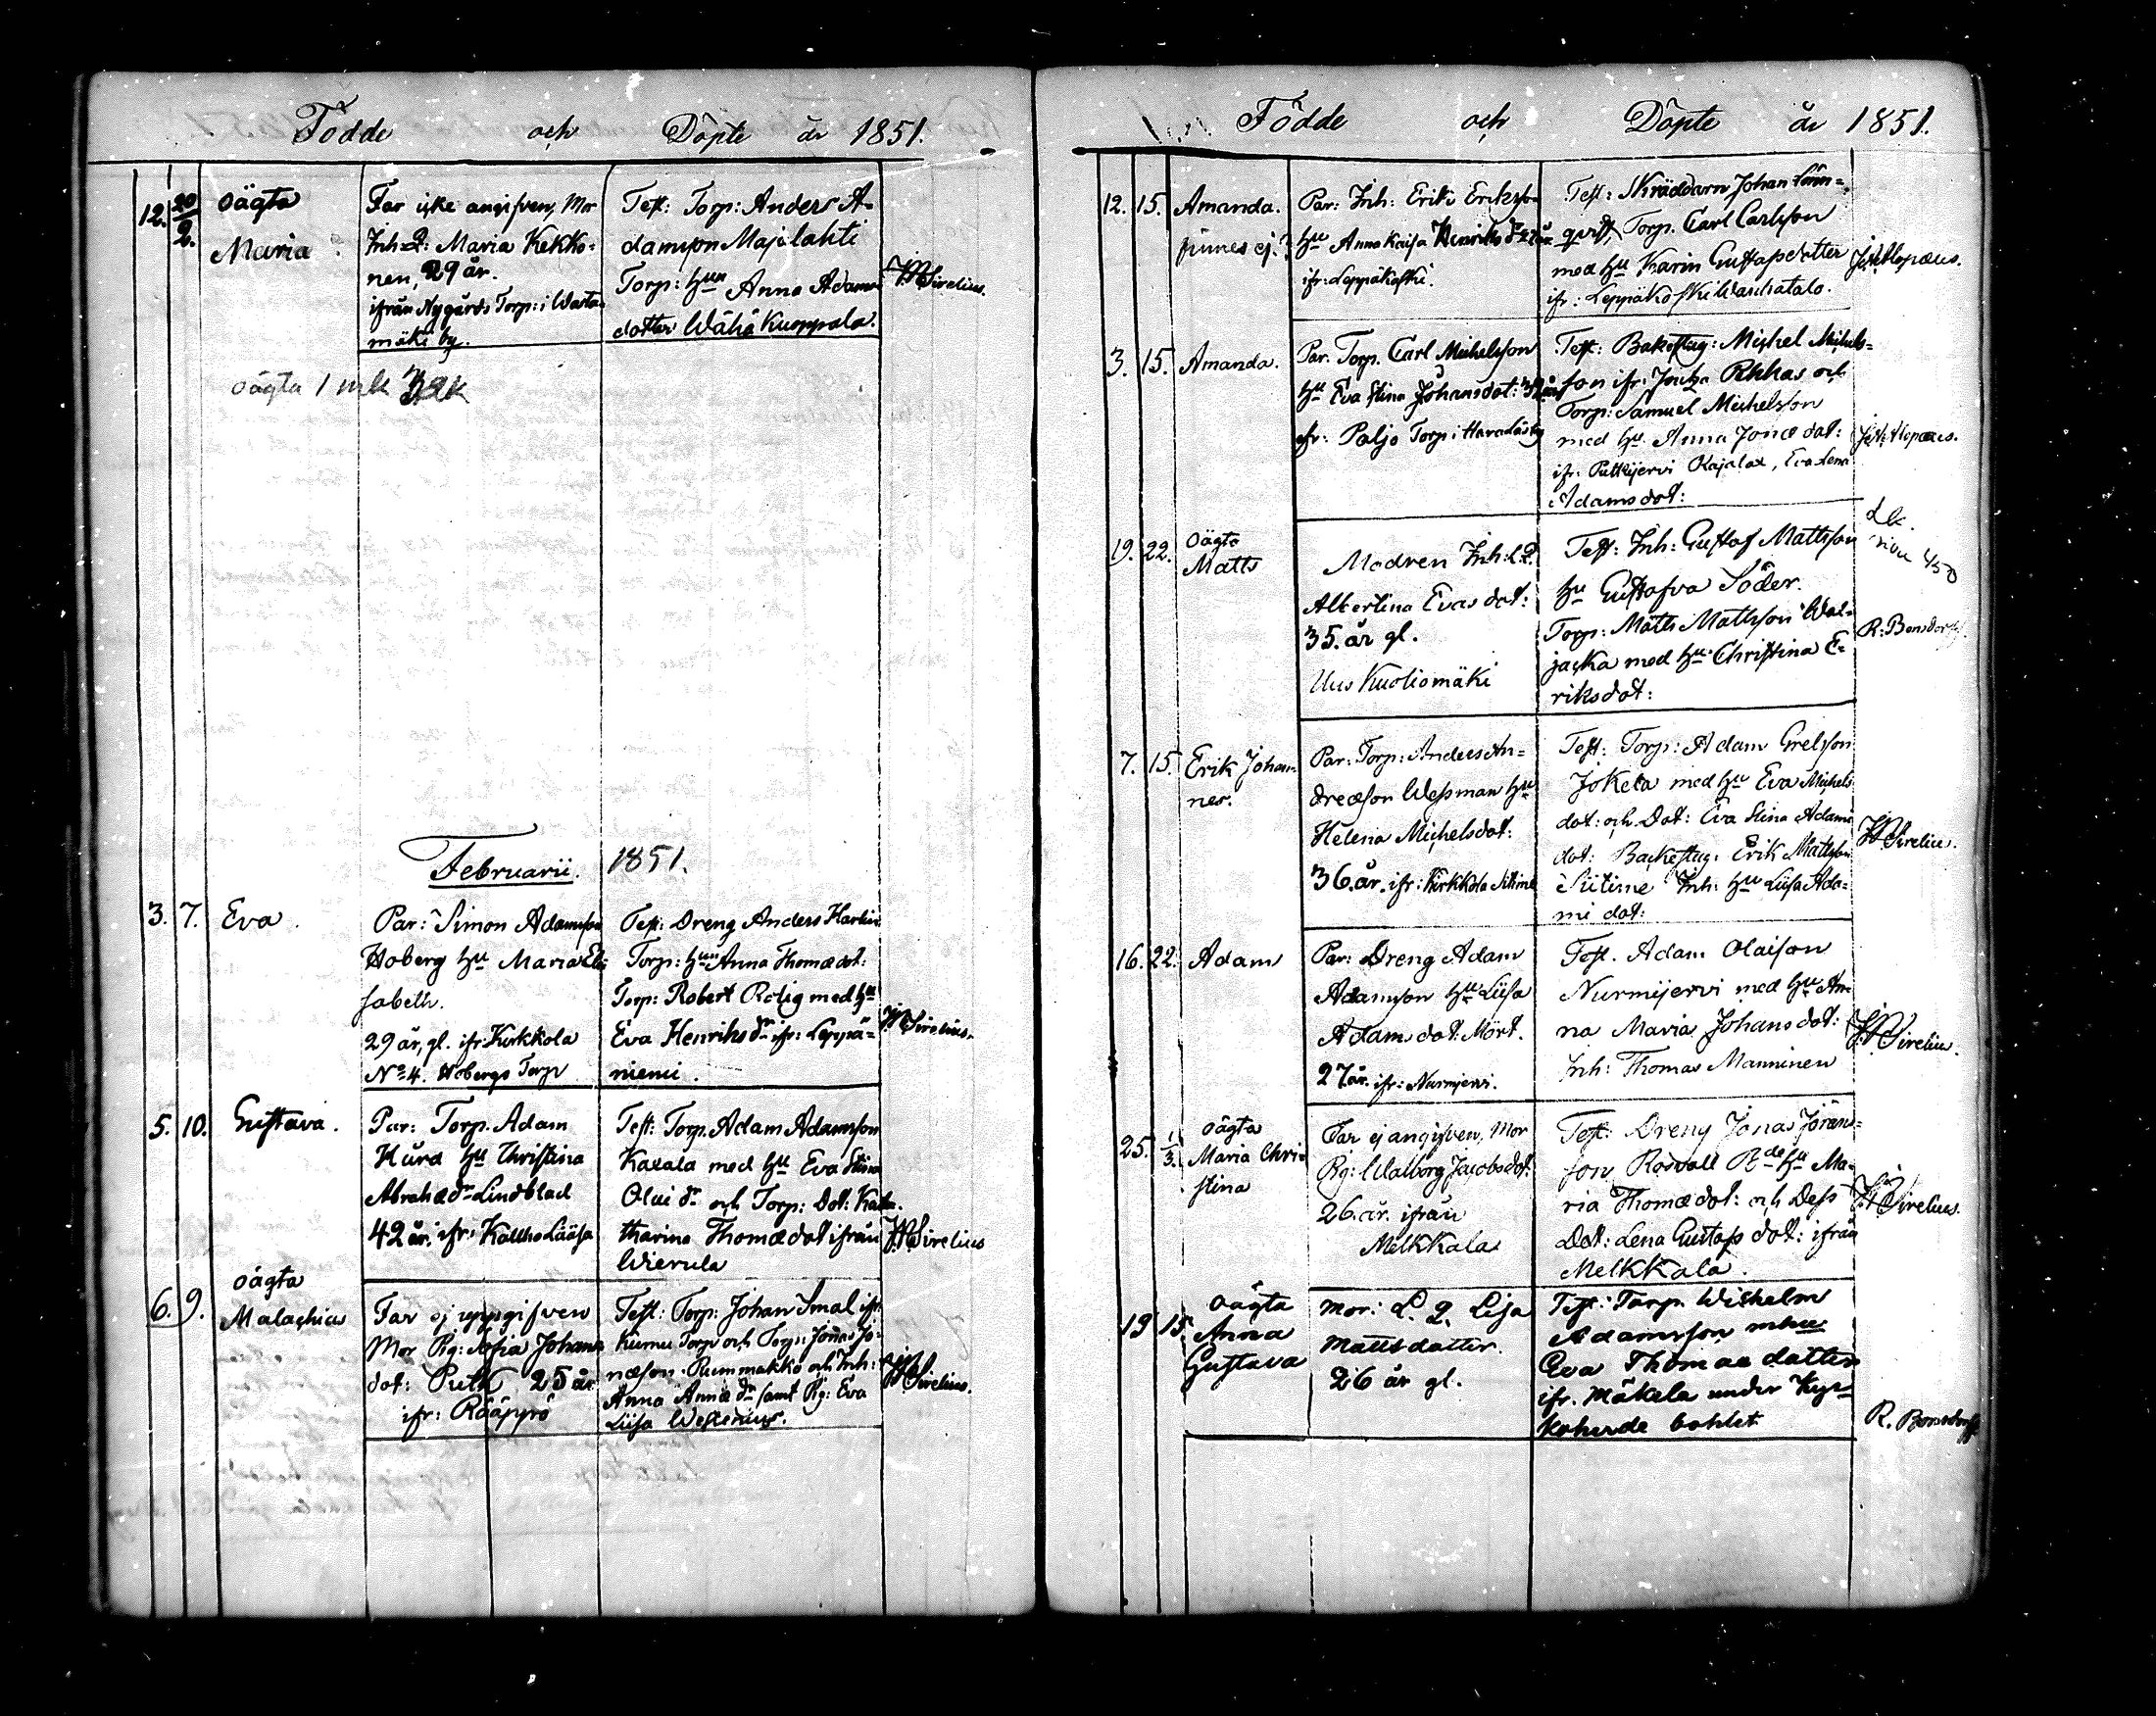 Födde och Döpte år 1851.
12. 20/2. oägta
Maria
Far icke angifven, Mor
Inh: Q: Maria Kekko-
nen, 29 år.
ifrån Nygårds Torp: i Warta-
mäki by.
Test: Torp: Anders A-
damsson Majalahti
Torp: hun Anna Adams
dotter Wähä Kuoppala.
Sirelius.
oägta 1 mk
Februarii. 1851.
3. 7. Eva.
Par: Simon Adamsson
Hoberg hu Maria Eli-
sabeth.
29 år, gl. ifr: Kirkkola
No 4. Hobergs Torp
Test: Dreng Anders
Torp: hun Anna Thomædot:
Torp: Robert Rolig med hu
Eva Henriks dr ifr: Leppä-
niemi.
Sirelius.
5. 10. Gustava.
Par: Torp. Adam
Hurd hu Christina
Abrahædr Lindblad
42 år. ifr:
Test: Torp. Adam Adamsson
Kaxala med hu Eva Stina
Olai dr och Torp: Dot: Kata-
tharina Thomædot ifrån
Wierula
Sirelius
6. 9. oägta
Malachias
Far ej uppgifven
Mor Pig: Sofia Johans
dot: 25 år
ifr: Rääpyrö
Test: Torp: Johan Smal ifr:
Kurnu Torp och Torp: Jonas Jo-
næson Rummakko och Inh:
Anna Annæ dr samt Pig: Eva
Liisa
Sirelius.
Födde och Döpte år 1851.
12. 15. Amanda.
finnes ej?
Par: Inh: Erik Eriksson
hu Anna Kaisa Henriks dr 27 år
ifr: Leppäkoski.
Test: Skräddarn Johan Lönn-
qvist, Torp. Carl Carlsson
med hu Karin Gustafsdotter
ifr: Leppäkoski Wanhatalo.
3. 15. Amanda.
Par. Torp. Carl Michelsson
hu Eva Stina Johansdot: 32 år
ifr: Paljo Torp i
Test: Bakestug: Michel Michels-
son ifr: och
Torp: Samuel Michelsson
med hu. Anna Jonæ dot:
ifr: Pitkijervi Kajalax, Eva Lena
Adamsdot:
19. 22. oägta
Matts
Modren Inh: L. Q.
Albertina Evasdot:
35. år gl.
Uus Kuoliomäki
Test: Inh: Gustaf Mattsson
hu Gustafva Söder.
Torp: Matts Mattsson Wal-
jacka med hu Christina E-
riksdot:
R: Bonsdorff.
7. 15. Erik Johan-
nes.
Par: Torp: Anders An-
dreæson Wessman hu
Helena Michelsdot:
36. år. ifr: Kirkkola Siitime
Test: Torp: Adam Grelsson
Jokela med hu Eva Michels
dot: och Dot: Eva Stina Adams
dot: Backestug. Erik Mattsson
Siitime Inh: hu Liisa Ada-
mi dot:
Sirelius.
16. 22. Adam
Par: Dreng Adam
Adamsson hu Liisa
Adamsdot: Mört.
27. år. ifr: Nurmijervi.
Test. Adam Olaison
Nurmijervi med hu An-
na Maria Johansdot:
Inh: Thomas Manninen
Sirelius.
25. 1/3. oägta
Maria Chri-
stina
Far ej angifven, Mor
Pig: Walborg Jacobsdot:
26. år. ifrån
Melkkala
Test: Dreng Jonas Jöräns-
son Rosvall hu Ma-
ria Thomædot: och Dess
Dot: Lena Gustafs dot: ifrån
Melkkala.
Sirelius.
19 15. oägta
Anna
Gustava
Mor: L. Q. Lisa
Mattsdatter.
26 år gl.
Test: Torp. Wilhelm
Adamsson m hu
Eva Thomaæ datter
ifr. Mäkela under Kyr-
koherde bohlet
R. Bonsdorff.